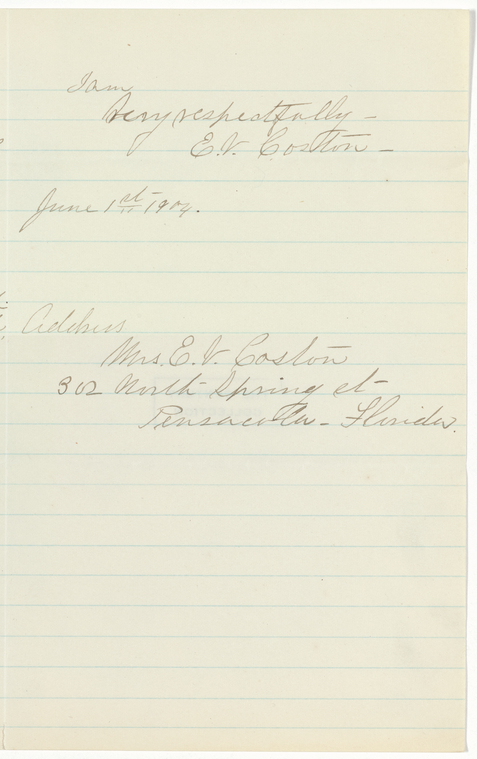 I am
Very respectfully –
E.V. Coston –
June 1st 1904.
Address
Mrs. E. V. Coston
302 North Spring st–
Pensacola – Florida.